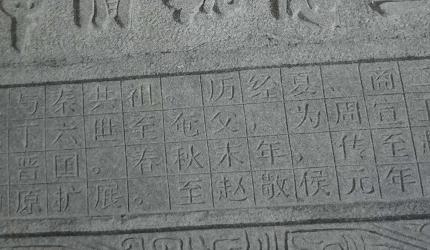 与秦共祖。历经夏、商
下六世至奄父，为周宣
晋国。春秋末年，传至
原扩展。至赵敬侯元年